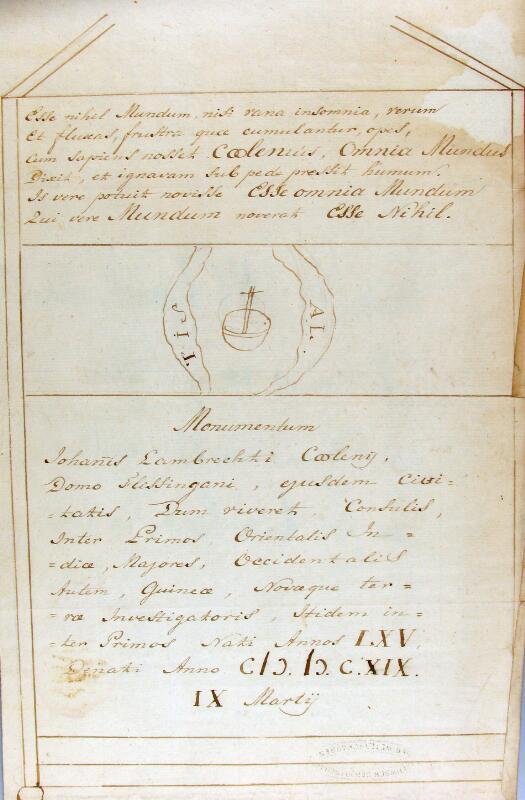 Esse nihil Mundum, nisi vana insomnia, verum
Et fluxas, frustra quæ cumulantur, opes,
Cum sapiens nosset Coolenius, Omnia Mundus
Dixit, et ignavam sub pede pressit humum.
Is vere potuit novisse Esse omnia Mundum
Qui vere Mundum noverat Esse Nihil.
TIC
AL.
Monumentum
Johanis Lambrechti Cooleny,
Domo Flessingani, ejusdem Civi=
=tatis, Dum viveret, Consulis,
Inter Primos Orientalis In=
=diæ, Majores, Occidentalis
Autem, Guineæ, Novæque ter=
=ræ Investigatoris, Itidem in=
=ter Primos Nati Annos LXV,
Denati Anno CIƆ.IƆ.C.XIX.
IX Martij